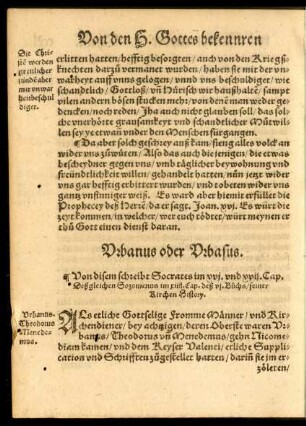 Von den H. Gottes bekennren
Die Chri-
stē werden
grewlicher
sünde aber
mit vnwar
heit beschul
diget.
erlitten hatten/hefftig besorgten/auch von den Kriegs-
knechten darzu vermanet wurden/haben sie mit der vn-
wahrheyt auff vnns gelogen/vnnd vns beschuldiget/wie
schandtlich/Gottloß/vñ Hürisch wir haußhaltē/sampt
vilen andern bösen stucken mehr/von denē man weder ge-
dencken/noch reden/Jha auch nicht glauben soll/das sol-
che vnerhörte grausamkeyt vnd schandtlicher Mutwil-
len sey ye etwañ vnder den Menschen fürgangen.
¶ Da aber solch geschrey auß kam/fieng alles volck an
wider vns zuwüten/Also das auch die jenigen/die etwas
bescheydner gegen vns/vñ tragender beywonung vnd
freündtlichkeit willen/gehandelt hatten/nun jetzt wider
vns gar hefftig erbittert wurden/vnd tobeten wider vns
gantz vnsinniger weiß. Es ward aber hiemit erfüllet die
Prophecey deß Herrē/da er sagt. Joan. xvj. Es würt die
zeyt kommen/in welcher/wer euch tödtet/würt meynen er
thů Gott einen dienst daran.
Vrbanus oder Vrbasus.
¶ Von disem schreibt Socrates im xvj. vnd xvij. Cap.
Deßgleichen Sozomenus im xiiij. Cap. deß vj. Bůchs/seiner
Kirchen History.
Vrbanus.
Theodorus
Menede-
mus.
ALs etliche Gottselige Fromme Männer/vnd Kir-
chendiener/bey achtzigen/deren Oberste waren Vr-
banus/Theodorus vñ Menedemus/gehn Nicome-
diam kamen/vnd dem Keyser Valenti/etliche Suppli-
cation vnd Schrifften zůgestellet hatten/dariñ sie jm er-
zöleten/